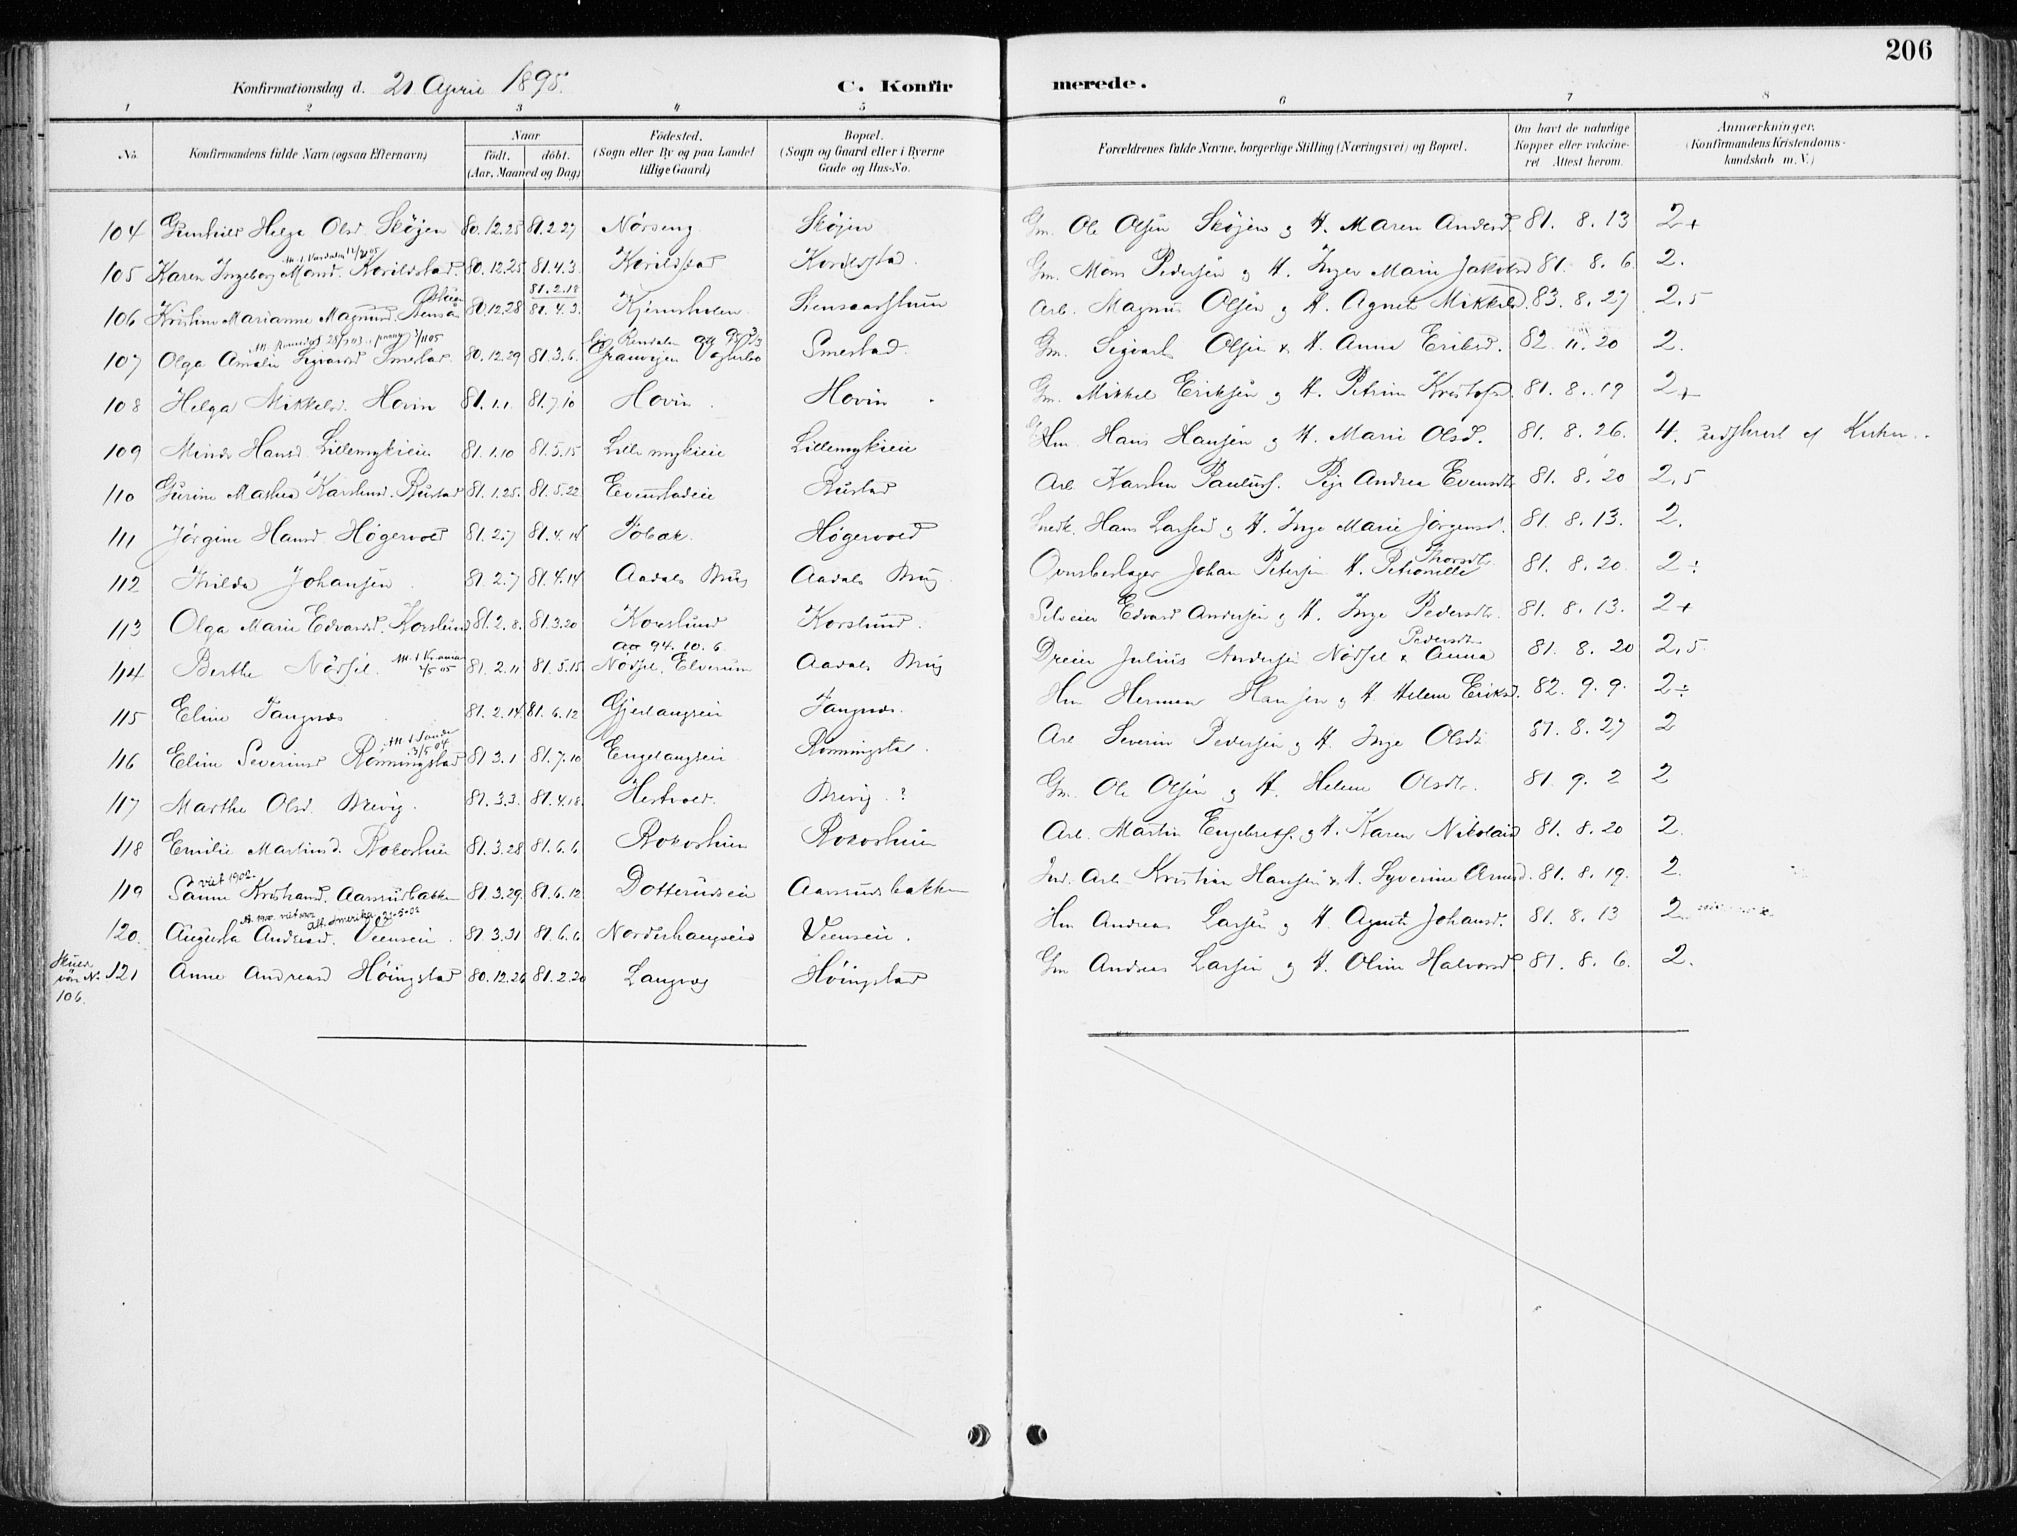 206
Konfirmationsdag d. 21 April 1895. C. Konfirmerede.
1 2 3 4 5 6 7 8
No. Konfirmandens fulde Navn (ogsaa Efternavn) Naar født. døbt. (Aar, Maaned og Dag) Fødested. (Sogn eller By og paa Landet tillige Gaard) Bopæl. (Sogn og Gaard eller i Byerne Gade og Hus-No. Forældrenes fulde Navne, borgerlige Stilling (Næringsvei) og Bopæl. Om havt de naturlige Kopper eller vakcineret. Attest herom. Anmærkninger. (Konfirmandens Kristendomskundskab m. V.)
104 Gunhild Helga Olsd. Skøjen 80.12.25 81.2.27 Nørseng Skøjen Gm. Ole Olsen Skøjen og H. Maren Andersd. 81.8.13 2+
105 Karen Ingeborg Monsd. Korildstad. 80.12.25 81.4.3. Korildstad Korildstad. Gm. Mons Pedersen og H. Inger Marie Jakobsd 81.8.6. 2.
81.2.18
106 Kristine Marianne Magnusd. 80.12.28 81.4.3. Arb. Magnus Olsen og H. Agnete Mikkelsd. 83.8.27 2,5
107 Olga Amalie Sigvardsd Smestad 80.12.29 81.3.6. Smestad. Gm. Sigvart Olsen & H. Anne Eriksd. 82.11.20 2.
108 Helga Mikkelsd. Hovin 81.1.1. 81.7.10 Hovin. Hovin. Gm. Mikkel Eriksen og H. Petrine Kristofsd. 81.8.19 2+
109 Minda Hansd. Lillemykleie 81.1.10 81.5.15 Lillemykleie Lillemykleie Hm. Hans Hansen og H. Marie Olsd. 81.8.26. 4. udskrevet af Kirken.
110 Gurine Mathea Karstensd. Rustad 81.1.25. 81.5.22 Evenstadeie Rustad Arb. Karsten Paulus. Pige Andrea Evensdtr 81.8.20 2,5
111 Jørgine Hansd. Høgervold 81.2.7 81.4.14 Høgervold Snedk. Hans Larsen og H. Inge Marie Jørgensd. 81.8.13. 2.
112 Hilda Johansen 81.2.7 81.4.14 Aadals Brug Aadals Brug Ovnsbeslager Johan Petersen H. Petronelle Thorsdtr 81.8.20. 2÷
113 Olga Marie Edvardsd. Korslund 81.2.8. 81.3.20 Korslund Korslund. Selveier Edvard Andersen og H. Inge Pedersdtr. 81.8.13. 2+
94.10.6.
114 Berthe Nødsel. 81.2.11 81.5.15 Nødsel, Elverum Aadals Brug Dreier Julius Andersen Nødsel & Anna Pedersdtr 81.8.20 2,5
115 Eline Tangnæs 81.2.14 81.6.12 Gjerlaugseie Tangnæs. Hm Herman Hansen og H Helene Eriksd. 82.9.9. 2÷
116 Eline Severinsd Rønningstad 81.3.1 81.7.10 Engelaugseie Rønningstad. Arb. Severin Pedersen og H. Inge Olsdt. 81.8.27 2
117 Marthe Olsd. Brevig. 81.3.3. 81.4.18. Hestvold. Brevig.? Gm. Ole Olsen og H. Helene Olsdtr. 81.9.2 2
118 Emilie Martinsd. Rokoshuie 81.3.28 81.6.6 Rokoshuie Rokoshuie Arb. Martin Engebrets. og H. Karen Nikolaid 81.8.20 2.
viet 1902.
119 Sanne Kristiansd. Aarsrudbakken 81.3.29. 81.6.12 Dotterudseie Aarsrudbakken Ind. Arb. Kristian Hansen & H. Syverine Arnesd. 81.8.19. 2.
120. Augusta Andreasd. Veenseie. 81.3.31 81.6.6 Norderhaugseie Veenseie. Hm Andreas Larsen og H. Agnete Johansd. 81.8.13 2.
106. 121 Anne Andreasd Høingstad 80.12.26 81.2.20 Langnæs Høingstad Gm Andreas Larsen og H. Oline Halvorsd 81.8.6. 2.